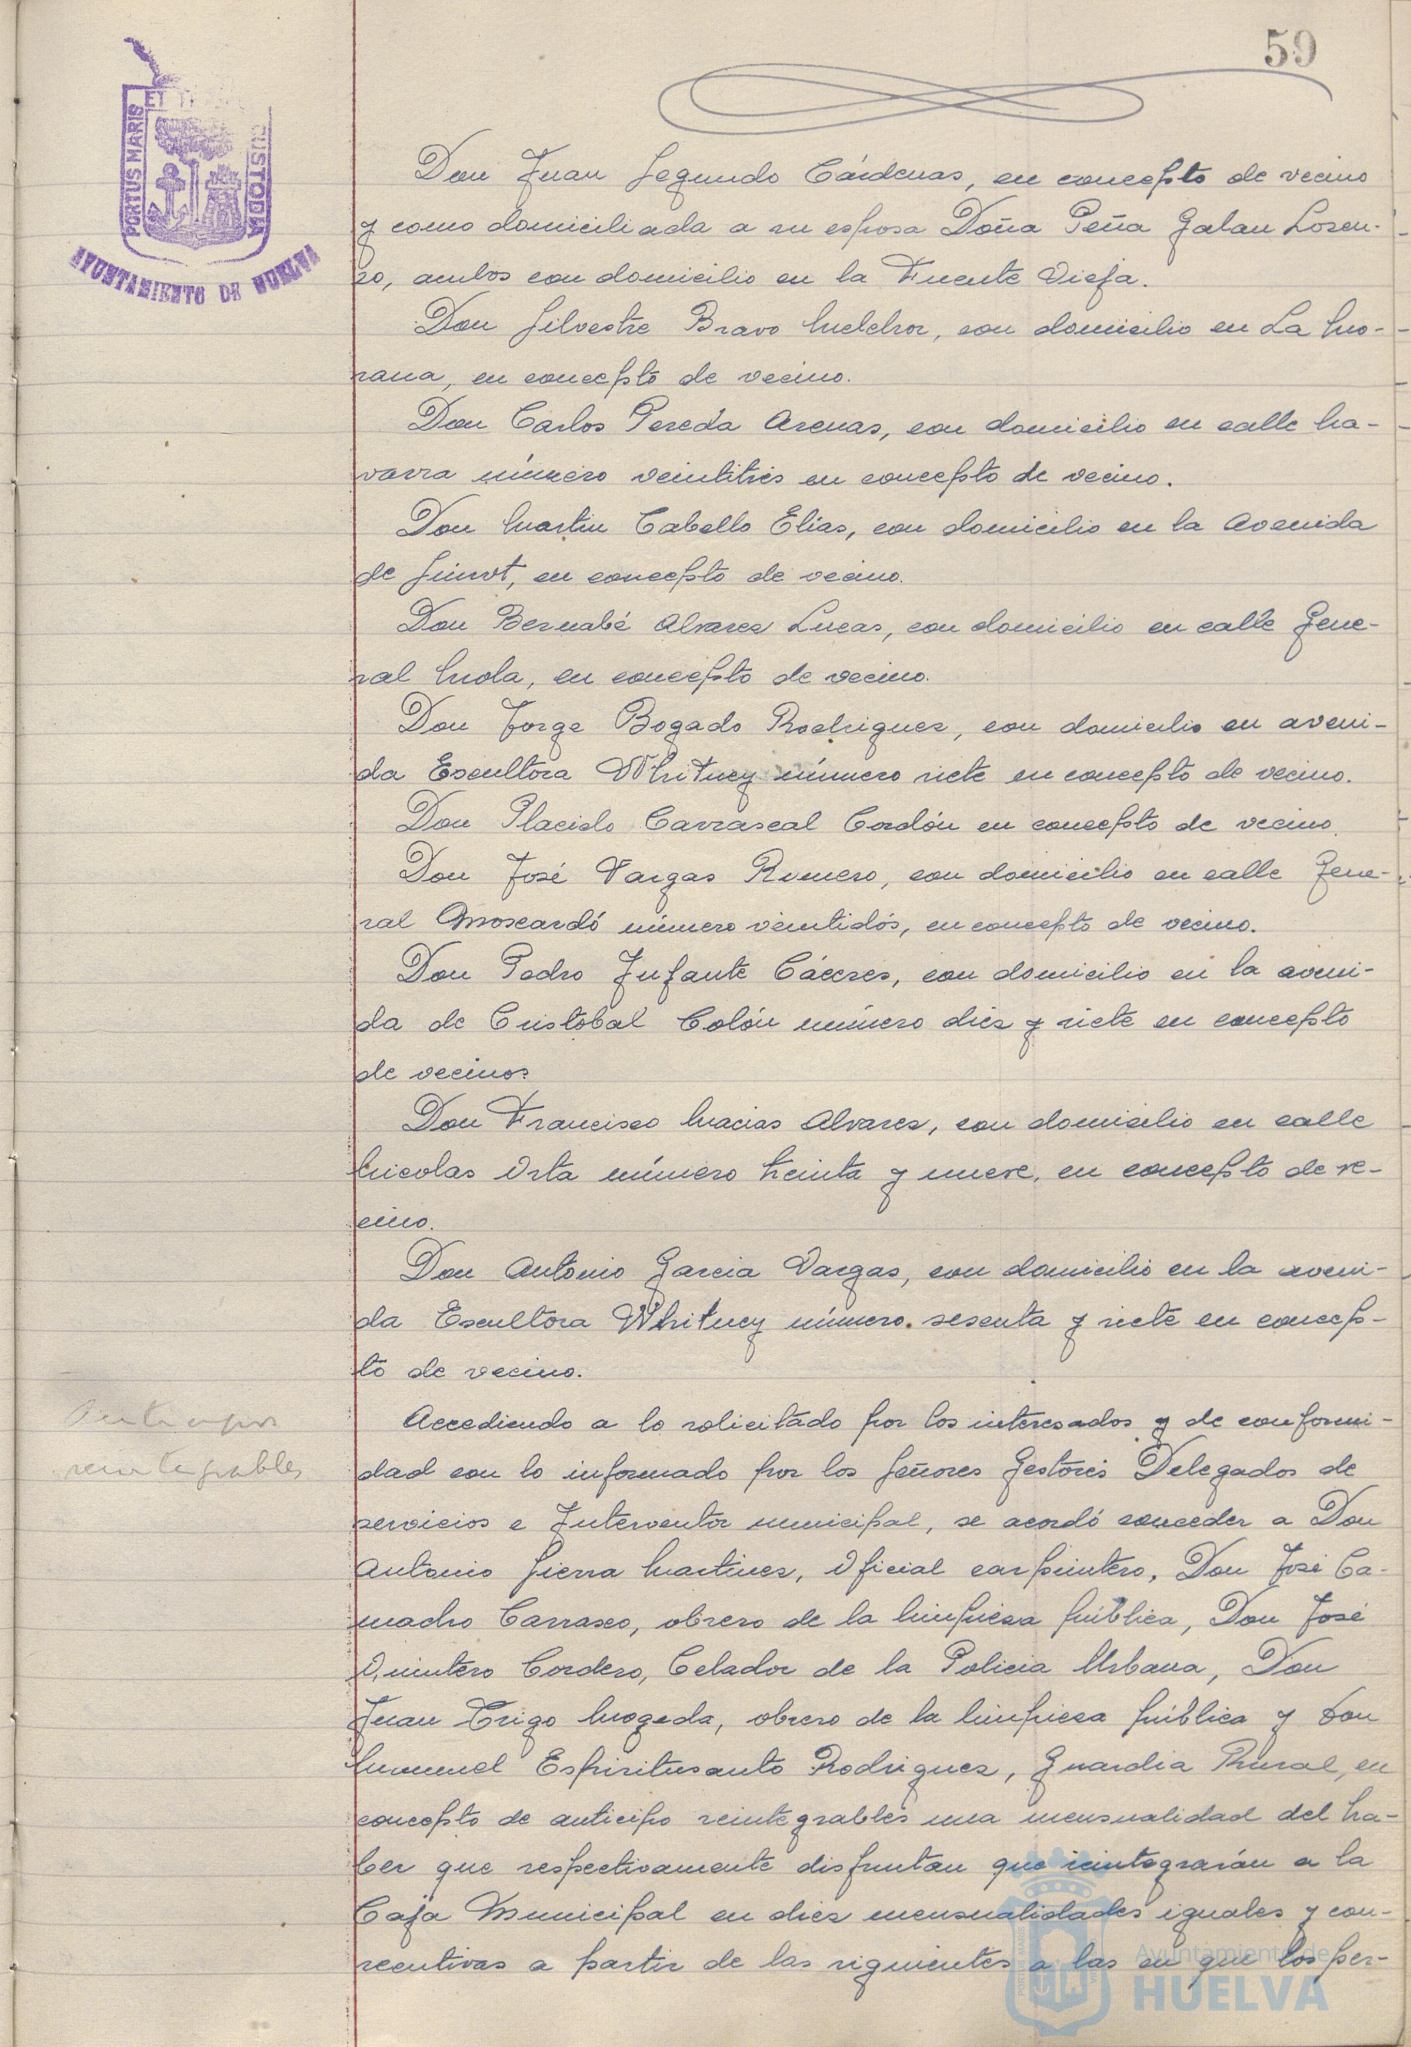 59
PORTUS MARIS ET TE CUSTODIA
AYUNTAMIENTO DE HUELVA
Don Juan Segundo Cárdenas, en concepto de vecino
y como domiciliada a su esposa Doña Peña Galan Loren-
zo, ambos con domicilio en la Fuente Vieja.
Don Silvestre Bravo Melchor, con domicilio en La Mo-
rana, en concepto de vecino.
Don Carlos Pereda Arenas, con domicilio en calle Na-
varra número veintitrés en concepto de vecino.
Don Martin Cabello Elías, con domicilio en la Avenida
de, en concepto de vecino.
Don Bernabé Alvarez Lucas, con domicilio en calle Gene-
ral Mola, en concepto de vecino.
Don Jorge Bogado Rodriguez, con domicilio en aveni-
da Escultora Whitney número siete en concepto de vecino.
Don Placido Carrascal Cordón en concepto de vecino.
Don José Vargas Romero, con domicilio en calle Gene-
ral Moscardó número veintidós, en concepto de vecino.
Don Pedro Infante Cáceres, con domicilio en la aveni-
da de Cristobal Colón número diez y siete en concepto
de vecinos
Don Francisco Macias Alvarez, con domicilio en calle
Nicolas Orta número treinta y nueve, en concepto de ve-
cino.
Don Antonio Garcia Vargas, con domicilio en la aveni-
da Escultora Whitney número. sesenta y siete en concep-
to de vecino.
Anticipos
reintegrables
Accediendo a lo solicitado por los interesados y de conformi-
dad con lo informado por los Señores Gestores Delegados de
servicios e Interventor municipal, se acordó conceder a Don
Antonio Sierra Martinez, Oficial carpintero, Don José Ca-
macho Carrasco, obrero de la limpieza pública, Don José
Quintero Cordero, Celador de la Policia Urbana, Don
Juan Trigo Mogeda, obrero de la limpieza pública y Don
Manuel Espiritusanto Rodriguez, Guardia Rural, en
concepto de anticipo reintegrables una mensualidad del ha-
ber que respectivamente disfrutan que reintegrarán a la
Caja Municipal en diez mensualidades iguales y con-
secutivas a partir de las siguientes a las en que los per-
Ayuntamiento de
HUELVA